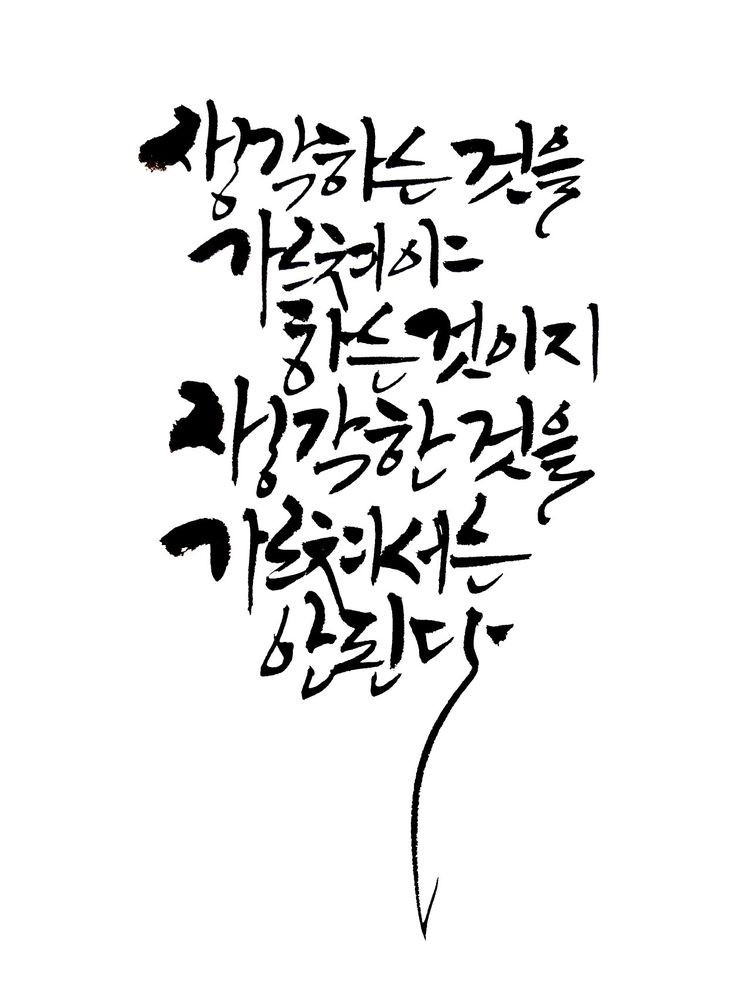 생각하는 것을
가르쳐야
하는 것이지
생각한 것을
가르쳐서는
안된다